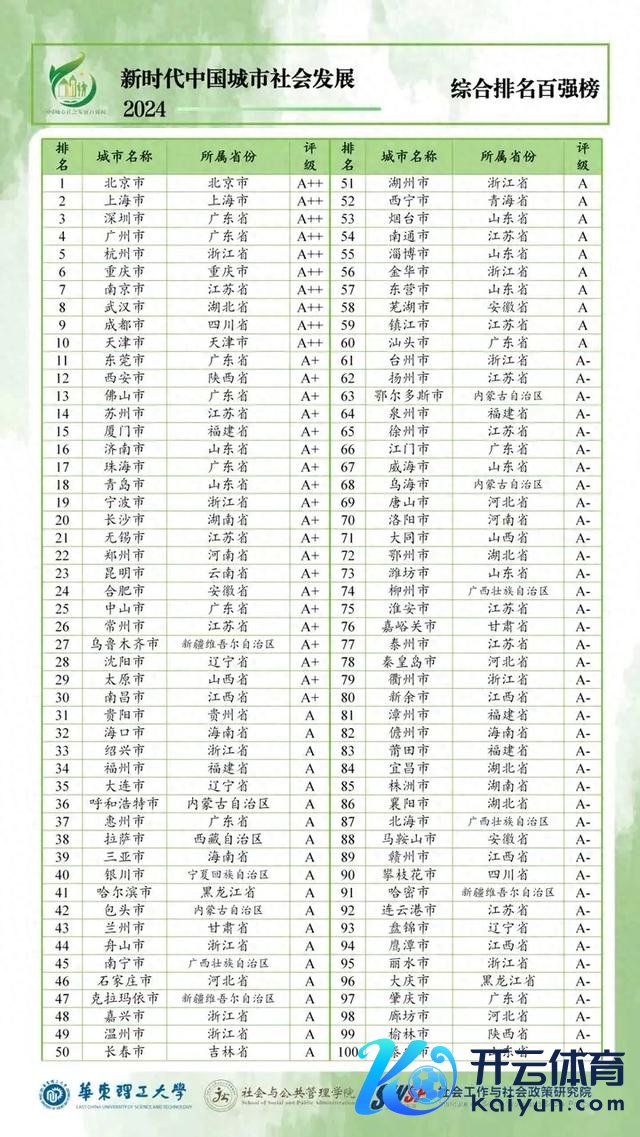 新时代中国城市社会发展
2024
综合排名百强榜
排名 城市名称 所属省份 评级 排名 城市名称 所属省份 评级
1 北京市 北京市 A++ 51 湖州市 浙江省 A
2 上海市 上海市 A++ 52 西宁市 青海省 A
3 深圳市 广东省 A++ 53 烟台市 山东省 A
4 广州市 广东省 A++ 54 南通市 江苏省 A
5 杭州市 浙江省 A++ 55 淄博市 山东省 A
6 重庆市 重庆市 A++ 56 金华市 浙江省 A
7 南京市 江苏省 A++ 57 东营市 山东省 A
8 武汉市 湖北省 A++ 58 芜湖市 安徽省 A
9 成都市 四川省 A++ 59 镇江市 江苏省 A
10 天津市 天津市 A++ 60 汕头市 广东省 A
11 东莞市 广东省 A+ 61 台州市 浙江省 A-
12 西安市 陕西省 A+ 62 扬州市 江苏省 A-
13 佛山市 广东省 A+ 63 鄂尔多斯市 内蒙古自治区 A-
14 苏州市 江苏省 A+ 64 泉州市 福建省 A-
15 厦门市 福建省 A+ 65 徐州市 江苏省 A-
16 济南市 山东省 A+ 66 江门市 广东省 A-
17 珠海市 广东省 A+ 67 威海市 山东省 A-
18 青岛市 山东省 A+ 68 乌海市 内蒙古自治区 A-
19 宁波市 浙江省 A+ 69 唐山市 河北省 A-
20 长沙市 湖南省 A+ 70 洛阳市 河南省 A-
21 无锡市 江苏省 A+ 71 大同市 山西省 A-
22 郑州市 河南省 A+ 72 鄂州市 湖北省 A-
23 昆明市 云南省 A+ 73 潍坊市 山东省 A-
24 合肥市 安徽省 A+ 74 柳州市 广西壮族自治区 A-
25 中山市 广东省 A+ 75 淮安市 江苏省 A-
26 常州市 江苏省 A+ 76 嘉峪关市 甘肃省 A-
27 乌鲁木齐市 新疆维吾尔自治区 A+ 77 泰州市 江苏省 A-
28 沈阳市 辽宁省 A+ 78 秦皇岛市 河北省 A-
29 太原市 山西省 A+ 79 衢州市 浙江省 A-
30 南昌市 江西省 A+ 80 新余市 江西省 A-
31 贵阳市 贵州省 A 81 漳州市 福建省 A-
32 海口市 海南省 A 82 儋州市 海南省 A-
33 绍兴市 浙江省 A 83 莆田市 福建省 A-
34 福州市 福建省 A 84 宜昌市 湖北省 A-
35 大连市 辽宁省 A 85 株洲市 湖南省 A-
36 呼和浩特市 内蒙古自治区 A 86 襄阳市 湖北省 A-
37 惠州市 广东省 A 87 北海市 广西壮族自治区 A-
38 拉萨市 西藏自治区 A 88 马鞍山市 安徽省 A-
39 三亚市 海南省 A 89 赣州市 江西省 A-
40 银川市 宁夏回族自治区 A 90 攀枝花市 四川省 A-
41 哈尔滨市 黑龙江省 A 91 哈密市 新疆维吾尔自治区 A-
42 包头市 内蒙古自治区 A 92 连云港市 江苏省 A-
43 兰州市 甘肃省 A 93 盘锦市 辽宁省 A-
44 舟山市 浙江省 A 94 鹰潭市 江西省 A-
45 南宁市 广西壮族自治区 A 95 丽水市 浙江省 A-
46 石家庄市 河北省 A 96 大庆市 黑龙江省 A-
47 克拉玛依市 新疆维吾尔自治区 A 97 肇庆市 广东省 A-
48 嘉兴市 浙江省 A 98 廊坊市 河北省 A-
49 温州市 浙江省 A 99 榆林市 陕西省 A-
50 长春市 吉林省 A 100
开云体育
Kaiyun.com
华东理工大学
EAST CHINA UNIVERSITY OF SCIENCE AND TECHNOLOGY
社会与公共管理学院
School of Social and Public Administration
社会工作与社会政策研究院